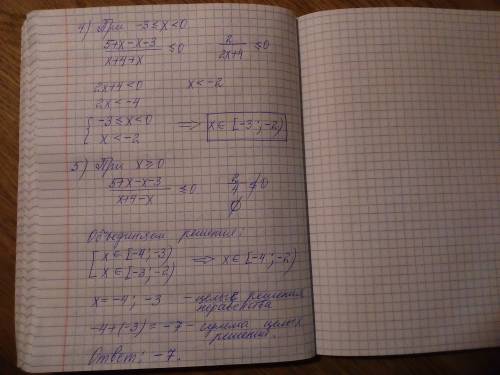 4) При -3 ≤ x < 0
(5+x-x-3)/(x+4+x) ≤ 0   2/(2x+4) ≤ 0
2x+4 < 0   x < -2
2x < -4
{ -3 ≤ x < 0
{ x < -2   ⇒ x ∈ [-3; -2)
5) При x ≥ 0
(5+x-x-3)/(x+4-x) ≤ 0   2/4 ≰ 0
∅
Объединяем решения:
[ x ∈ [-4; -3)
[ x ∈ [-3; -2)   ⇒ x ∈ [-4; -2)
x = -4; -3 - целые решения
неравенства
-4+(-3) = -7 - сумма целых
решений.
Ответ: -7.